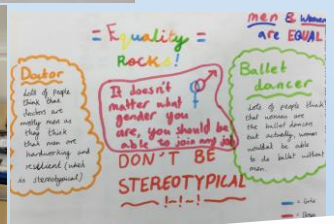 = Equality =
Rocks!
men & women
are EQUAL
Doctor
Lots of people
think that
doctors are
mostly men as
they think
that men are
hardworking and
resilient (which
is stereotypical)
It doesn't
matter what
gender you
are, you should be
able to join any job
DON'T BE
STEREOTYPICAL
Ballet
dancer
Lots of people think
that women are
the ballet dancers
but actually, women
wouldn't be able
to do ballet without
men.
= Girls